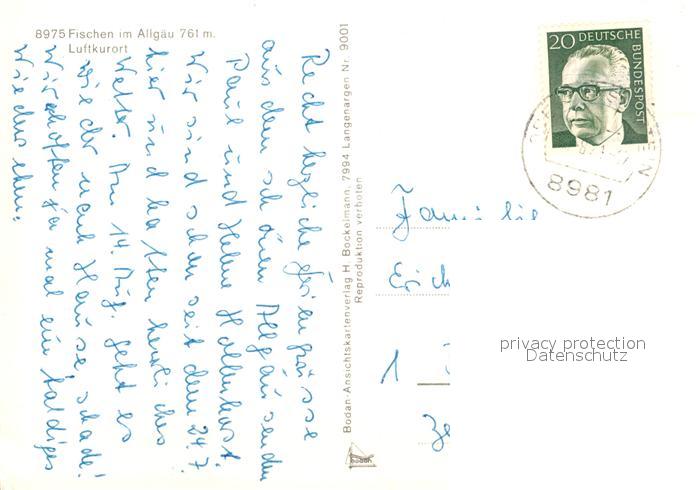 8975 Fischen im Allgäu 761 m.
Luftkurort
Recht herzliche Feriengrüsse
aus dem schönen Allgäu senden
Paul und Helene
Wir sind schon seit dem 24.7.
hier und hatten herrliches
Wetter. Am 14. Aug. geht es
wieder nach Hause, schade!
Wir hoffen ja mal ein baldiges
Wiedersehen.
Bodan-Ansichtskartenverlag H. Bockelmann, 7994 Langenargen Nr. 9001
Reproduktion verboten
bodan
20 DEUTSCHE BUNDESPOST
8981
Familie
Erich
1
privacy protection
Datenschutz